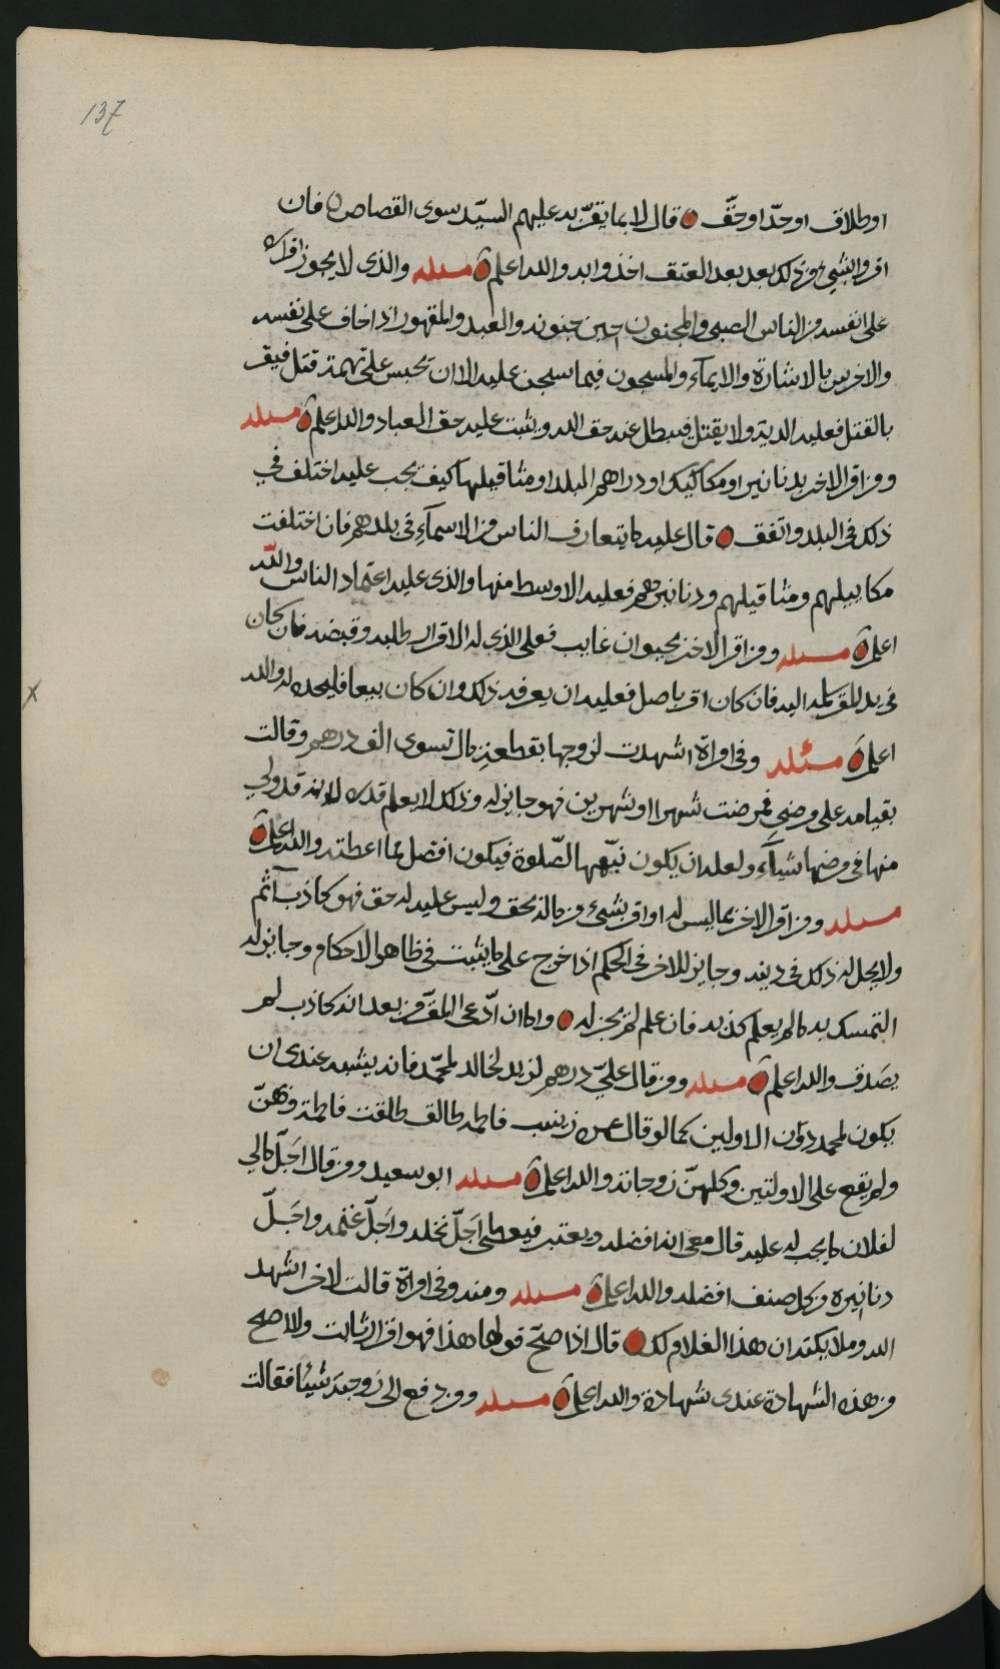 137
او طلاق او حدّ او حقّ قال لا بما يقرّ به عليهم السيّد سوى القصاص فان
اقروا بشيء من ذلك بعد بعد العتق اخذوا به والله اعلم مسئله والذي لا يجوز اقراره
على نفسه من الناس الصبي والمجنون حين جنونه والعبد والمقهور اذا خاف على نفسه
والاخرس بالاشارة والايماء والمسجون فيما سجن عليه الا ان يحبس على تهمة قتل فيقر
بالقتل فعليه الدية ولا يقتل فيبطل عنه حق الله ويثبت عليه حق العباد والله اعلم مسئله
ومن اقر لاخر بدنانير او مكاكيك او دراهم البلد او مثاقيلها كيف يجب عليه اختلف في
ذلك في البلد واتفق قال عليه ما يتعارف الناس من الاسماء في بلدهم فان اختلفت
مكاييلهم ومثاقيلهم ودنانيرهم فعليه الاوسط منها والذي عليه اعتماد الناس والله
اعلم مسئله ومن اقر لاخر بحيوان غايب فعلى الذي له الاقرار طلبه وقبضه فان كان
في يد المقر سلمه اليه فان كان اقر باصل فعليه ان يعرفه ذلك وان كان بيعا فليحده له والله
اعلم مسئله وفي امراة اشهدت لزوجها بقطعة مال تسوى الف درهم وقالت
بقيامه على مرضي فمرضت شهرا او شهرين فهو جايز له وذلك لا يعلم قدره لانه قد ولي
منها في مرضها شياء ولعله ان يكون نبّهها للصّلوة فيكون افضل مما اعطته والله اعلم
مسئله ومن اقر لاخر بما ليس له او اقر بشيء من ماله بحق وليس عليه له حق فهو كاذب آثم
ولا يحل له ذلك في دينه وجايز للاخر في الحكم اذا خرج على ما يثبت في ظاهر الاحكام وجايز له
التمسك به ما لم يعلم كذبه فان علم لم يجز له واما ان ادّعى المقرّ من بعد انه كاذب لم
يصدق والله اعلم مسئله ومن قال عليّ درهم لزيد لخالد لمحمّد فانه يشبه عندي ان
يكون لمحمد دون الاولين كما لو قال عمره زينب فاطمه طالق طلقت فاطمة منهنّ
ولم يقع على الاولتين وكلهنّ زوجاته والله اعلم مسئله ابو سعيد ومن قال اجلّ مالي
لفلان ما يجب له عليه قال معي انه افضله ويعتبر فيعطى اجلّ نخله واجلّ غنمه واجلّ
دنانيره من كل صنف افضله والله اعلم مسئله ومنه وفي امراة قالت لاخر اشهد
الله وملايكته ان هذا الغلام لك قال اذا صحّ قولها هذا فهو اقرار ثابت ولا اصح
من هذه الشهادة عندي شهادة والله اعلم مسئله ومن دفع الى زوجته شيئا فقالت